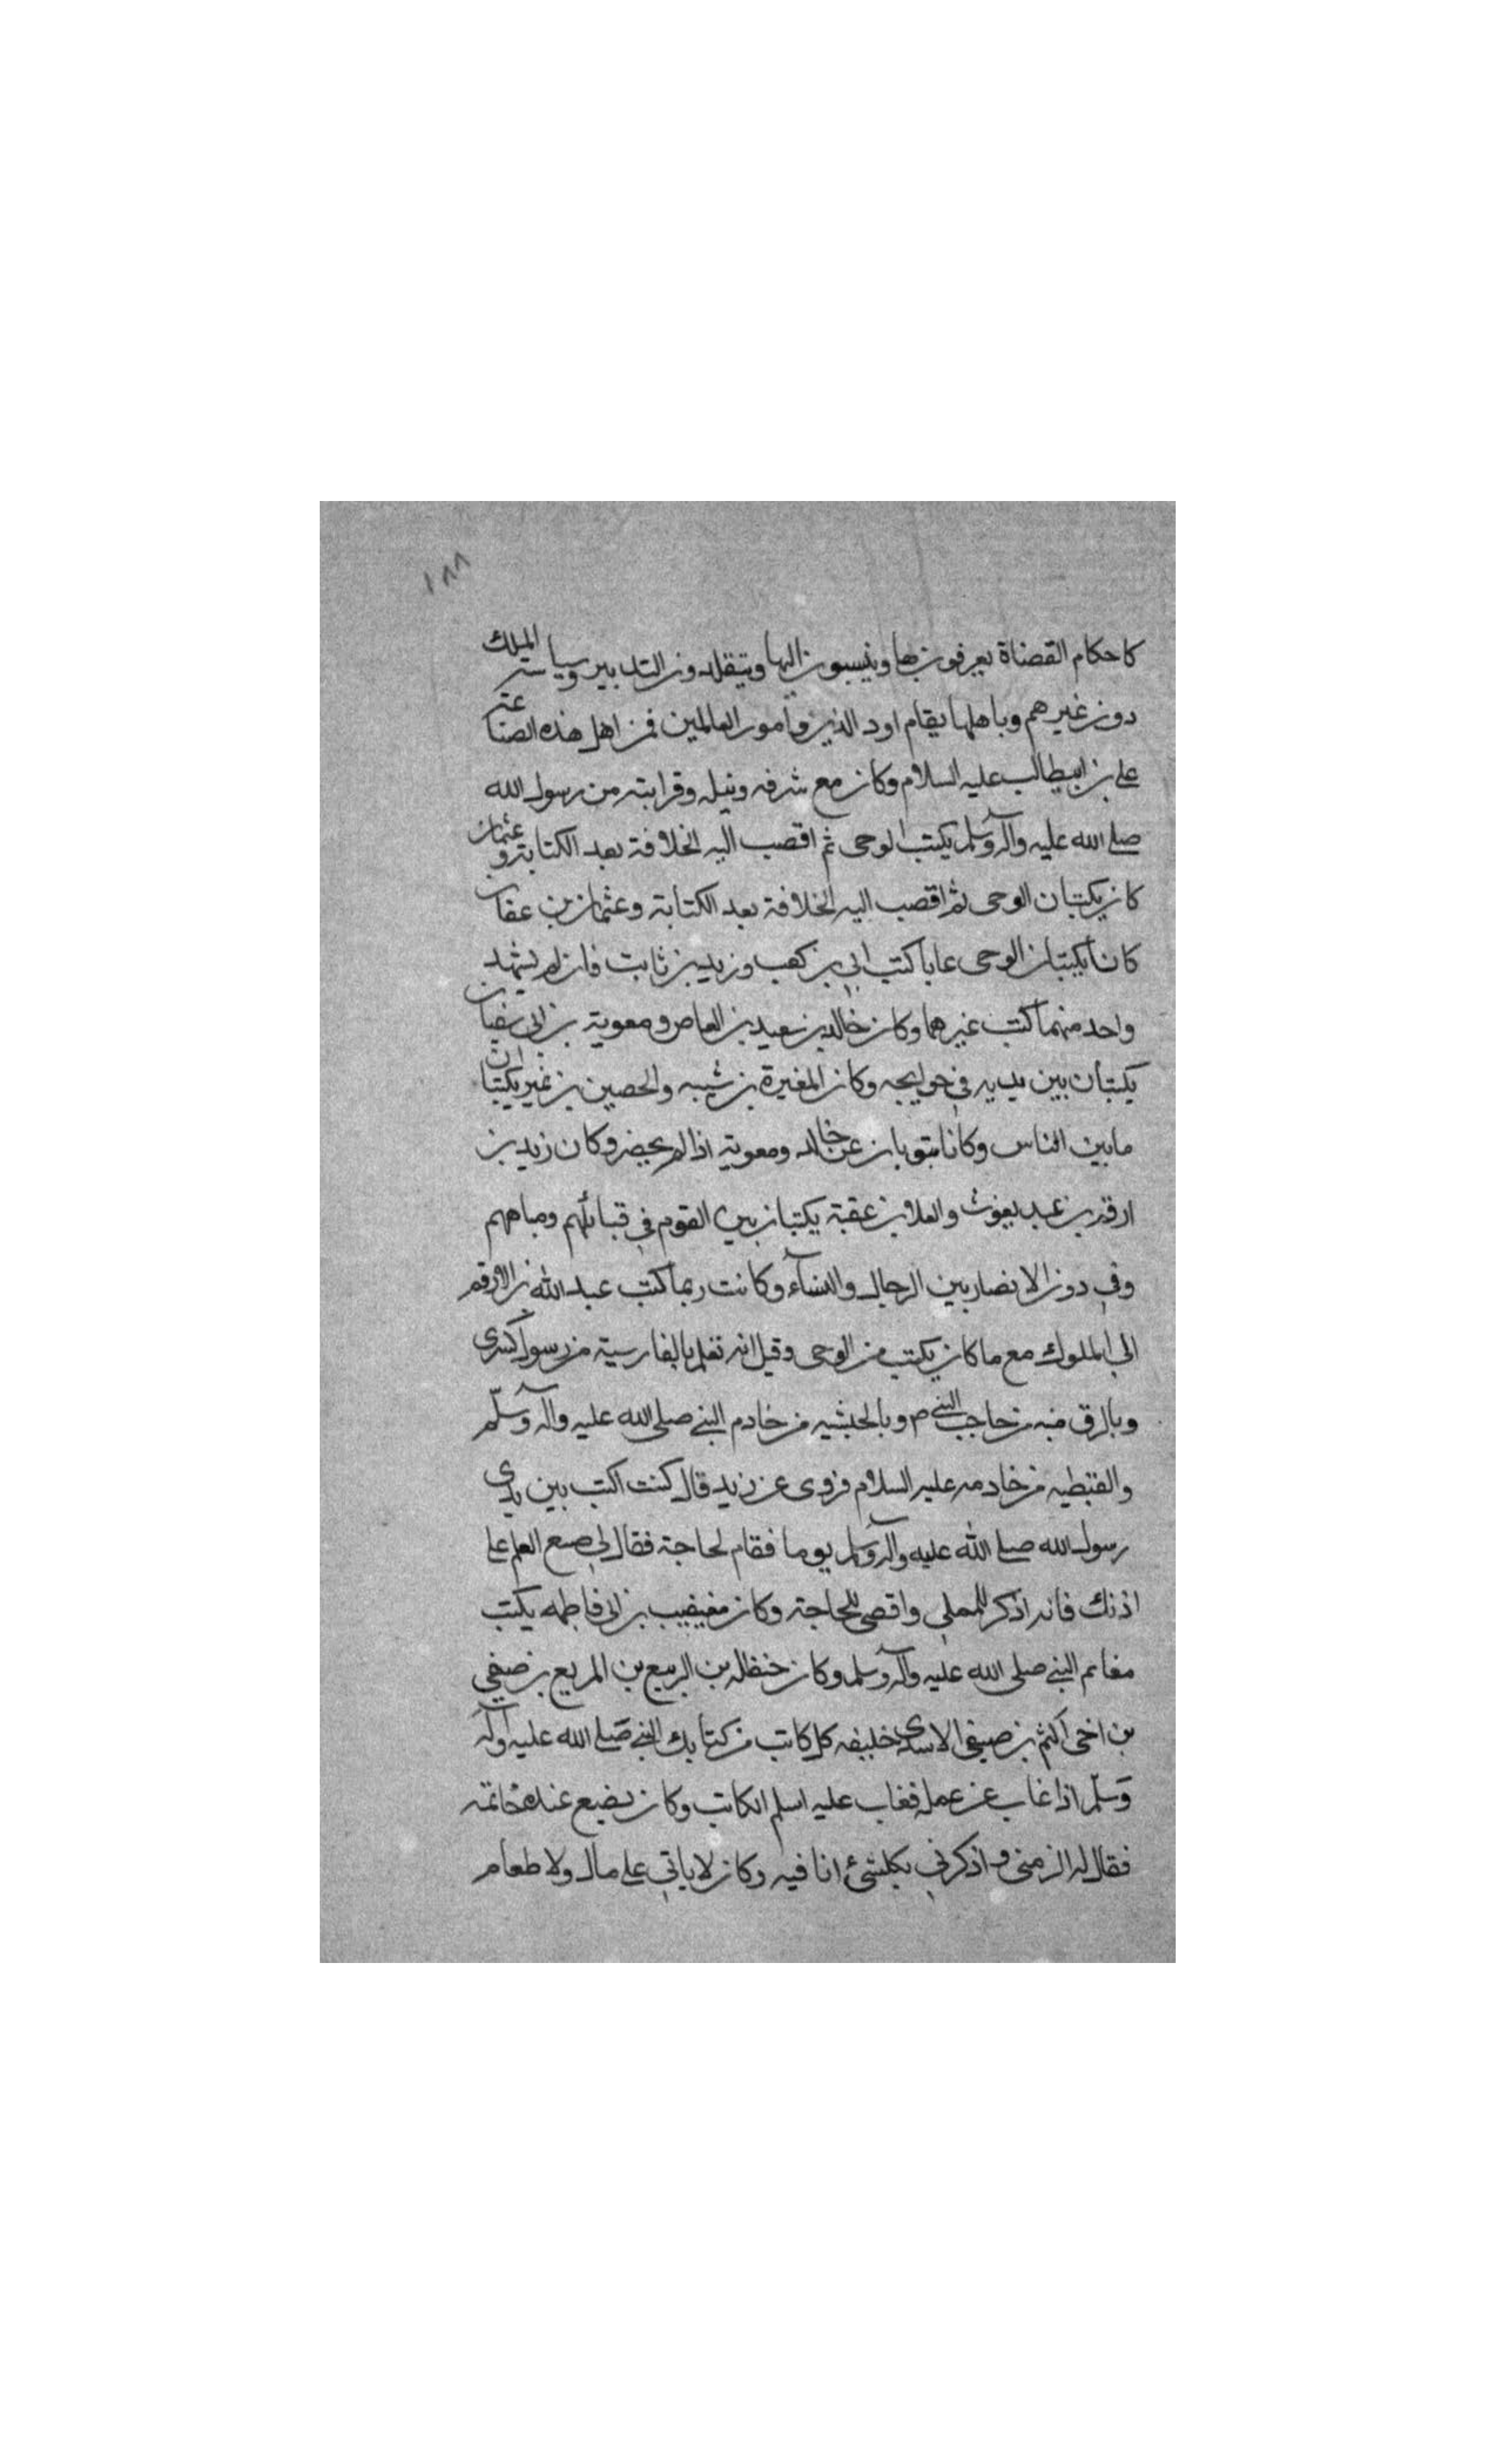 ١٨٨
كاحكام القضاة يعرفون بها وينسبون اليها ويتقلدون التدبير وسياسة الملك
دون غيرهم وباهلها يقام اود الدين وامور العالمين فمن اهل هذه الصناعة
علي بن ابيطالب عليه السلام وكان مع شرفه ونبله وقرابته من رسول الله
صلى الله عليه وآله وسلم يكتب الوحى ثم اقصب اليه الخلافة بعد الكتابة وعثمان
كان يكتبان الوحى ثم اقصب اليه الخلافة بعد الكتابة وعثمان بن عفان
كانا يكتبان الوحى عابا كتب ابي بن كعب وزيد بن ثابت فان لم يشهد
واحد منهما كتب غيرهما وكان خالد بن سعيد بن العاص ومعوية بن ابى سفيان
يكتبان بين يديه في حوايجه وكان المغيرة بن شيبه والحصين بن نمير يكتبان
مابين الناس وكانا يتوبان عن خالد ومعوية اذا لم يحضر وكان زيد بن
ارقم بن عبد يغوث والعلا بن عقبة يكتبان بين القوم في قبائلهم ومياههم
وفي دون الانصار بين الرجال والنساء وكانت ربما كتب عبد الله بن الارقم
الى الملوك مع ما كان يكتب من الوحى وقيل انه تعلم بالفارسية من رسول كسرى
وبالرق منه من حاجب النبي ص وبالحبشيه من خادم النبي صلى الله عليه وآله وسلّم
والقبطيه من خادمه عليه السلام فروى عن زيد قال كنت اكتب بين يدى
رسول الله صلى الله عليه وآله وسلم يوما فقام لحاجة فقال لي ضع القلم على
اذنك فانه اذكر للمملي واقضى للحاجة وكان مغيقيب بن ابى فاطمه يكتب
مغانم النبي صلى الله عليه وآله وسلم وكان حنظله بن الربيع بن المربع بن صيفي
بن اخى اكثم بن صيفى الاسدى خليفه كل كاتب من كتابك النبي صلى الله عليه وآله
وسلّم اذا غاب عن عمله فغاب عليه اسلم الكاتب وكان يضع عنده خاتمه
فقال له الزمنى واذكرني بكلشئ انا فيه وكان لا ياتي على مال ولا طعام